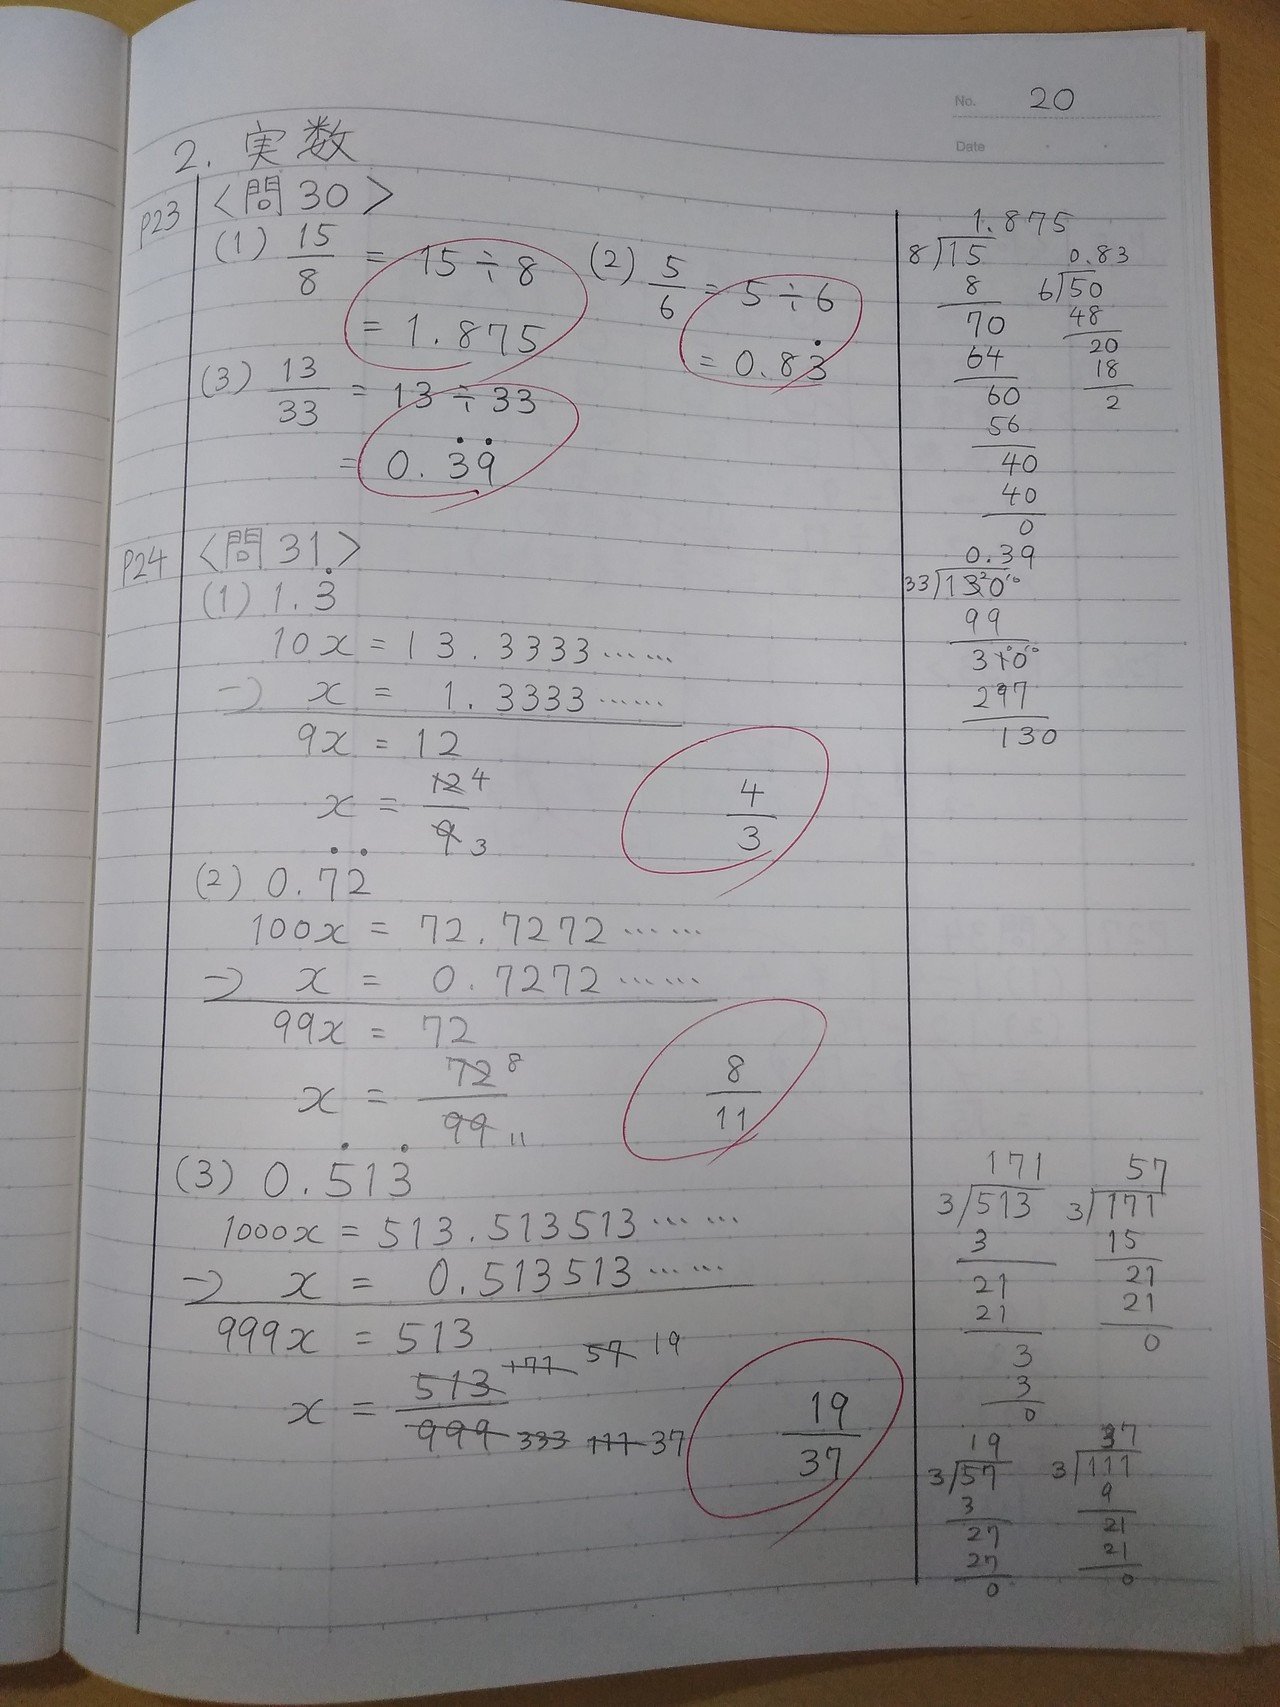 No. 20
Date
2. 実数
P23 〈問30〉
(1) 15/8 = 15÷8
= 1.875
(2) 5/6 = 5÷6
= 0.83̇
(3) 13/33 = 13÷33
= 0.3̇9̇
P24 〈問31〉
(1) 1.3̇
10x = 13.3333……
−) x = 1.3333……
9x = 12
x = 12/9 4 3
4/3
(2) 0.7̇2̇
100x = 72.7272……
−) x = 0.7272……
99x = 72
x = 72/99 8 11
8/11
(3) 0.5̇13̇
1000x = 513.513513……
−) x = 0.513513……
999x = 513
x = 513/999 171 57 19 333 111 37
19/37
1.875
8)15
8
70
64
60
56
40
40
0
0.83
6)50
48
20
18
2
0.39
33)130
99
310
297
130
171
3)513
3
21
21
3
3
0
57
3)171
15
21
21
0
19
3)57
3
27
27
0
37
3)111
9
21
21
0